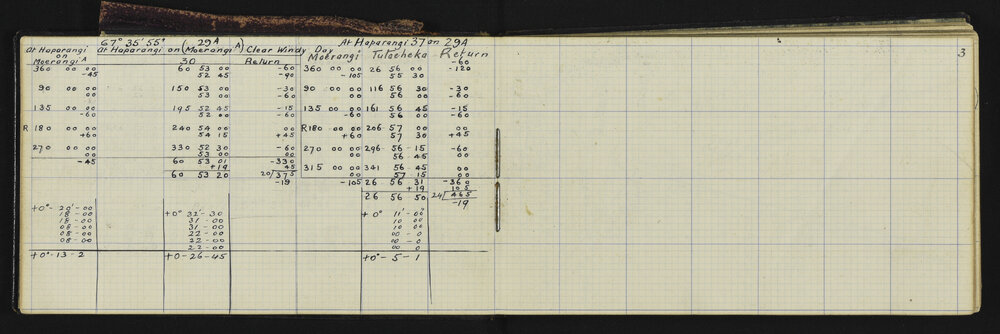 67° 35' 55" 29A At Haparangi 37 on 29A
At Haparangi At Haparangi on (Moerangi A) Clear Windy Day Moerangi Tutaeheka Return
on
Moerangi A 30 Return -60
360 00 00 60 53 00 -60 360 00 00 26 56 00 -120
-45 52 45 -90 -105 55 30
90 00 00 150 53 00 -30 90 00 00 116 56 30 -30
00 53 00 -60 00 56 00 -60
135 00 00 195 52 45 -15 135 00 00 161 56 45 -15
-60 52 00 -60 -60 56 00 -60
R 180 00 00 240 54 00 00 R180 00 00 206 57 00 00
+60 54 15 +45 +60 57 30 +45
270 00 00 330 52 30 -60 270 00 00 296 56 15 -60
00 53 00 00 00 56 45 00
-45 60 53 01 -330 315 00 00 341 56 45 00
+19 45 00 57 15 00
60 53 20 20/375 -105 26 56 31 -360
-19 +19 105
26 56 50 24/465
-19
+0° - 20' - 00 +0° 32' - 30 +0° 11' - 00
18 - 00 31 - 00 10 00
18 - 00 31 - 00 10 00
08 - 00 22 - 00 00 - 0
08 - 00 22 - 00 00 - 0
08 - 00 22 - 00 00 0
+0° - 13 - 2 +0 - 26 - 45 +0° - 5 - 1
3